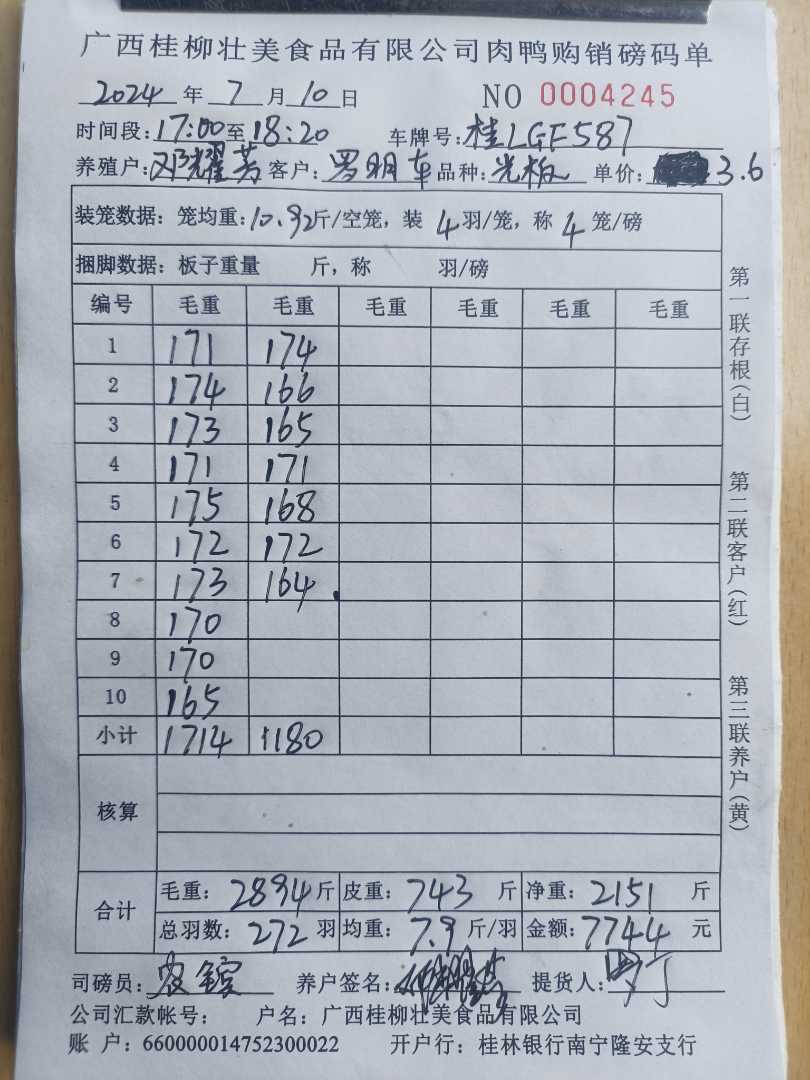 广西桂柳壮美食品有限公司肉鸭购销磅码单
2024 年 7 月 10 日 NO 0004245
时间段:17:00至18:20 车牌号:桂LGF587
养殖户:邓耀芳 客户:罗明车 品种:光板 单价: 3.6
装笼数据: 笼均重:10.92斤/空笼, 装 4 羽/笼, 称 4 笼/磅
捆脚数据: 板子重量 斤, 称 羽/磅
编号 毛重 毛重 毛重 毛重 毛重 毛重
1 171 174
2 174 166
3 173 165
4 171 171
5 175 168
6 172 172
7 173 164
8 170
9 170
10 165
小计 1714 1180
核算
合计 毛重: 2894 斤 皮重: 743 斤 净重: 2151 斤
总羽数: 272 羽 均重: 7.9 斤/羽 金额: 7744 元
司磅员: 养户签名: 提货人:
公司汇款帐号: 户名: 广西桂柳壮美食品有限公司
账 户: 660000014752300022 开户行: 桂林银行南宁隆安支行
第一联存根(白)
第二联客户(红)
第三联养户(黄)